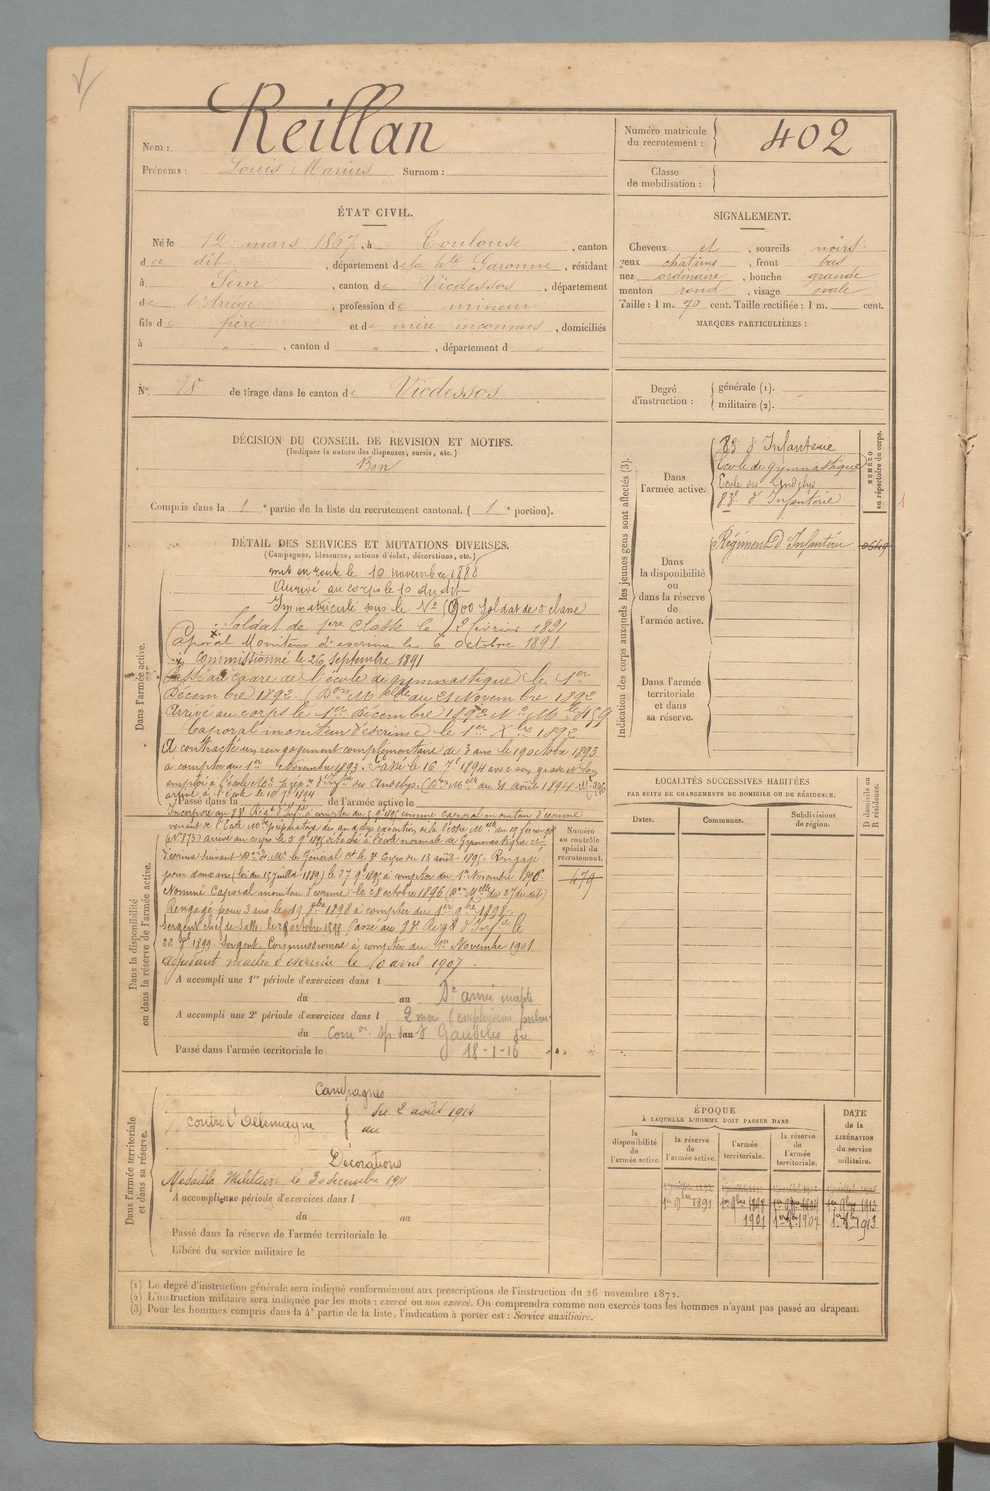 Nom : Reillan
Prénoms : Louis Marius Surnom :
Numéro matricule du recrutement : 402
Classe de mobilisation :
ÉTAT CIVIL.
Né le 12 mars 1867, à Toulouse, canton
du dit, département de la hte Garonne, résidant
à Sem, canton de Vicdessos, département
de l'Ariège, profession de mineur
fils de père et de mère inconnus, domiciliés
à " , canton d " , département d "
SIGNALEMENT.
Cheveux et , sourcils noirs
yeux chatins , front bas
nez ordinaire , bouche grande
menton rond , visage ovale
Taille : 1 m. 70 cent. Taille rectifiée : 1 m. cent.
MARQUES PARTICULIÈRES :
No 18 de tirage dans le canton de Vicdessos
Degré d'instruction : générale (1).
militaire (2).
DÉCISION DU CONSEIL DE REVISION ET MOTIFS.
(Indiquer la nature des dispenses, sursis, etc.)
Bon
Compris dans la 1e partie de la liste du recrutement cantonal. ( 1e portion).
Indication des corps auxquels les jeunes gens sont affectés (3).
NUMÉRO au répertoire du corps.
Dans l'armée active.
83e d'Infanterie
Ecole de gymnastique
Ecole des Andelys
83e d'Infanterie
Dans la disponibilité ou dans la réserve de l'armée active.
Régiment d'Infanterie
Dans l'armée territoriale et dans sa réserve.
DÉTAIL DES SERVICES ET MUTATIONS DIVERSES.
(Campagnes, blessures, actions d'éclat, décorations, etc.)
Dans l'armée active.
mis en route le 10 novembre 1888
Arrivé au corps le 10 du dit
Immatriculé sous le No 900 Soldat de 2e classe
Soldat de 1ere classe le 2 février 1891
Caporal Moniteur d'escrime le 6 Octobre 1891
Commissionné le 26 Septembre 1891
Passé au cadre de l'école de gymnastique le 1er
Décembre 1892. (Don Mlle du 21 Novembre 1892
Arrivé au corps le 1er Décembre 1892 No Mle
Caporal moniteur d'escrime le 1er Xbre 1892
A contracté un rengagement complémentaire de 3 ans le 19 octobre 1893
à compter du 1er Novembre 1893. Passé le 16 7e 1894 avec son grade et son
emploi à l'école Mre prépre d'Infie des Andelys (Don Mlle du 31 août 1894
arrivé à l'école le 16 7e 1894
Passé dans la de l'armée active le
Incorporé au 83e Régt d'Infie à compter du 5 9e 1895 comme caporal moniteur d'escrime
venant de l'Ecole Mre préparatoire des Andelys
Rengagé
pour deux ans (Loi du 15 juillet 1889) le 27 9e 1895 à compter du 1er Novembre 1896.
Nommé Caporal moniteur d'escrime le 28 octobre 1896 (Don Mlle du 27 du dit)
Rengagé pour 3 ans le 19 8bre 1898 à compter du 1er 9bre 1898.
Sergent chef de Salle, le 28 octobre 1898 Passé au
1899. Sergent. Commissionné à compter du 1er Novembre 1901
Adjudant maître d'escrime le 10 avril 1907.
Dans la disponibilité ou dans la réserve de l'armée active.
Numéro au contrôle spécial du recrutement.
479
A accompli une 1re période d'exercices dans l
du au
A accompli une 2e période d'exercices dans l
du au
2 mois (emphysème pulm.
Com on sp. de St Gaudens du
18-1-16
Passé dans l'armée territoriale le
LOCALITÉS SUCCESSIVES HABITÉES
PAR SUITE DE CHANGEMENTS DE DOMICILE OU DE RÉSIDENCE.
Dates. Communes. Subdivisions de région. D domicile ou R résidence.
Dans l'armée territoriale et dans sa réserve.
Campagnes
contre l'Allemagne { du 2 août 1914
au
Décorations
Médaille Militaire le 30 décembre
A accompli une période d'exercices dans l
du au
Passé dans la réserve de l'armée territoriale le
Libéré du service militaire le
ÉPOQUE
À LAQUELLE L'HOMME DOIT PASSER DANS
la disponibilité de l'armée active. la réserve de l'armée active. l'armée territoriale. la réserve de l'armée territoriale. DATE de la LIBÉRATION du service militaire.
1er 9bre 1891 1er 9bre 1898 1er 9bre 1913
1901 1er 9bre 1907 1er 9bre 1913
(1) Le degré d'instruction générale sera indiqué conformément aux prescriptions de l'instruction du 26 novembre 1872.
(2) L'instruction militaire sera indiquée par les mots : exercé ou non exercé. On comprendra comme non exercés tous les hommes n'ayant pas passé au drapeau.
(3) Pour les hommes compris dans la 4e partie de la liste, l'indication à porter est : Service auxiliaire.